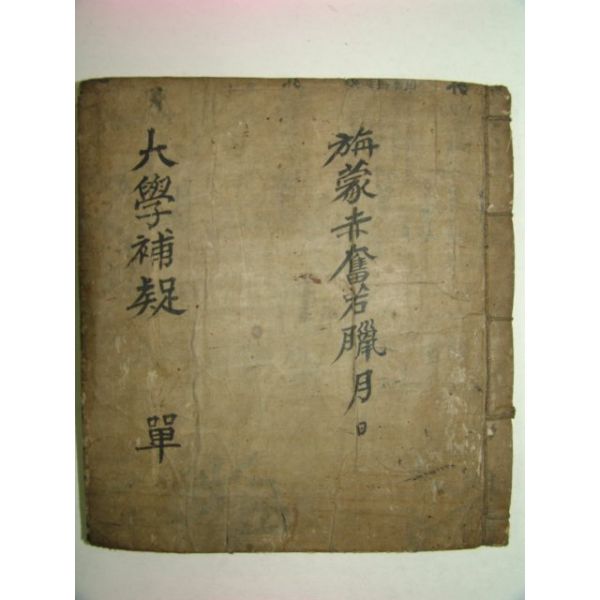 旃蒙赤奮若臘月日
大學補疑
單